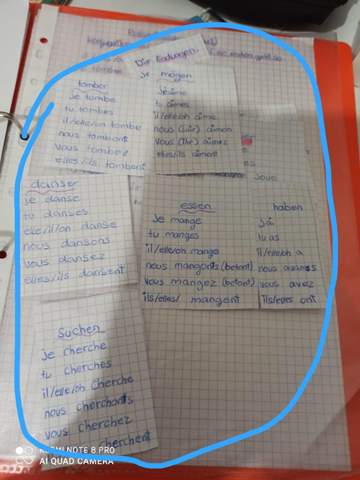 Die Endungen
tomber
Je tombe
tu tombes
il/elle/on tombe
nous tombons
vous tombez
elles/ils tombent
Je mögen
J'aime
tu aimes
il/elle/on aime
nous (wir) aimon
vous (Ihr) aimez
elles/ils aiment
Joue
danser
Je danse
tu danses
elle/il/on danse
nous dansons
vous dansez
elles/ils dansent
essen
Je mange
tu manges
il/elle/on mange
nous mangons (betont)
vous mangez (betont)
ils/elles/ mangent
haben
J'ai
tu as
il/elle/on a
nous avons
vous avez
ils/elles ont
Suchen
Je cherche
tu cherches
il/elle/on cherche
nous cherchons
vous cherchez
cherchent
NOTE 8 PRO
AI QUAD CAMERA